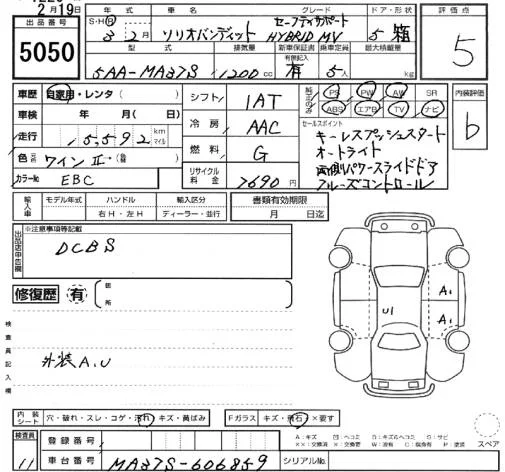 2月19日
出品番号 5050
年式 S・H・R 3年 2月
車名 ソリオバンディット
グレード セーフティサポート HYBRID MV
ドア・形状 5 箱
評価点 5
型式 5AA-MA37S
排気量 1200 cc
新車保証書 有無記入 有
乗車定員 5人
最大積載量 kg
車歴 自家用・レンタ( )
車検 年 月( 日)
走行 15,592 km マイル
色 元色 ワインⅡ→替
カラーNo EBC
シフト IAT
冷房 AAC
燃料 G
リサイクル料金 7690 円
純正のみ PS PW AW SR
ABS エアB TV ナビ
内装評価 b
セールスポイント
キーレスプッシュスタート
オートライト
両側パワースライドドア
クルーズコントロール
輸入車 モデル年式 ハンドル 右H・左H 輸入区分 ディーラー・並行
書類有効期限 月 日迄
出品店申告欄 ※注意事項等記載
DCBS
修復歴 有 箇所
検査員記入欄
外装A.U
A₁
A₁
U1
内装シート 穴・破れ・スレ・コゲ・汚れ・キズ・黄ばみ
Fガラス キズ・飛石・×要す
A:キズ
スペア
検査員 11
登録番号
車台番号 MA37S-606859
シリアルNo.